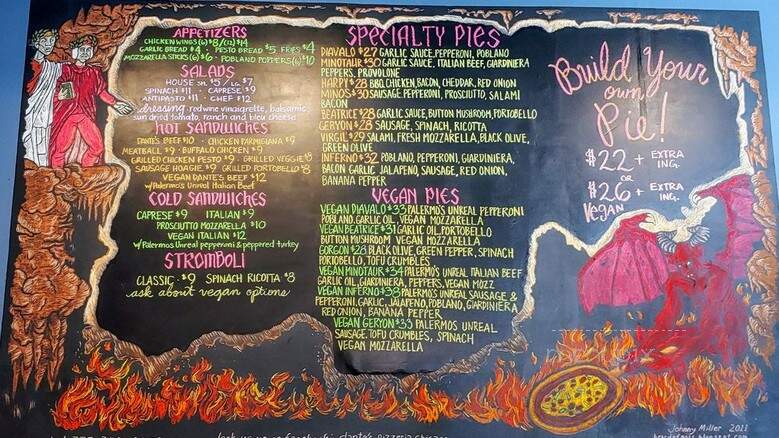 APPETIZERS
CHICKEN WINGS (6) $8 / (12) $14
GARLIC BREAD $4 · PESTO BREAD $5 FRIES $4
MOZZARELLA STICKS (6) $6 · POBLANO POPPERS (6) $10
SALADS
HOUSE SM. $5 / LG. $7
SPINACH $11 · CAPRESE $9
ANTIPASTO $11 · CHEF $12
dressing: red wine vinaigrette, balsamic,
sun dried tomato, ranch and bleu cheese
HOT SANDWICHES
DANTE'S BEEF $10 · CHICKEN PARMIGIANA $9
MEATBALL $9 · BUFFALO CHICKEN $9
GRILLED CHICKEN PESTO $9 · GRILLED VEGGIE $8
SAUSAGE HOAGIE $9 · GRILLED PORTOBELLO $8
VEGAN DANTE'S BEEF $12
w/ Palermo's Unreal Italian Beef
COLD SANDWICHES
CAPRESE $9 ITALIAN $9
PROSCIUTTO MOZZARELLA $10
VEGAN ITALIAN $12
w/ Palermos Unreal pepperoni & peppered turkey
STROMBOLI
CLASSIC · $9 SPINACH RICOTTA $8
ask about vegan options
SPECIALTY PIES
DIAVALO $27 GARLIC SAUCE, PEPPERONI, POBLANO
MINOTAUR $30 GARLIC SAUCE, ITALIAN BEEF, GIARDINIERA
PEPPERS, PROVOLONE
HARPY $28 BBQ, CHICKEN, BACON, CHEDDAR, RED ONION
MINOS $30 SAUSAGE, PEPPERONI, PROSCIUTTO, SALAMI
BACON
BEATRICE $28 GARLIC SAUCE, BUTTON MUSHROOM, PORTOBELLO
GERYON $28 SAUSAGE, SPINACH, RICOTTA
VIRGIL $29 SALAMI, FRESH MOZZARELLA, BLACK OLIVE,
GREEN OLIVE
INFERNO $32 POBLANO, PEPPERONI, GIARDINIERA,
BACON GARLIC, JALAPENO, SAUSAGE, RED ONION,
BANANA PEPPER
VEGAN PIES
VEGAN DIAVALO $33 PALERMO'S UNREAL PEPPERONI
POBLANO, GARLIC OIL, VEGAN MOZZARELLA
VEGAN BEATRICE $31 GARLIC OIL, PORTOBELLO
BUTTON MUSHROOM VEGAN MOZZARELLA
GORGON $28 BLACK OLIVE, GREEN PEPPER, SPINACH
PORTOBELLO, TOFU CRUMBLES
VEGAN MINOTAUR $34 PALERMO'S UNREAL ITALIAN BEEF
GARLIC OIL, GIARDINIERA, PEPPERS, VEGAN MOZZ
VEGAN INFERNO $38 PALERMO'S UNREAL SAUSAGE &
PEPPERONI, GARLIC, JALAPENO, POBLANO, GIARDINIERA
RED ONION, BANANA PEPPER
VEGAN GERYON $33 PALERMO'S UNREAL
SAUSAGE, TOFU CRUMBLES, SPINACH
VEGAN MOZZARELLA
Build Your
own
Pie!
$22 + EXTRA ING.
or
$26 + EXTRA ING.
Vegan
Johnny Miller 2011